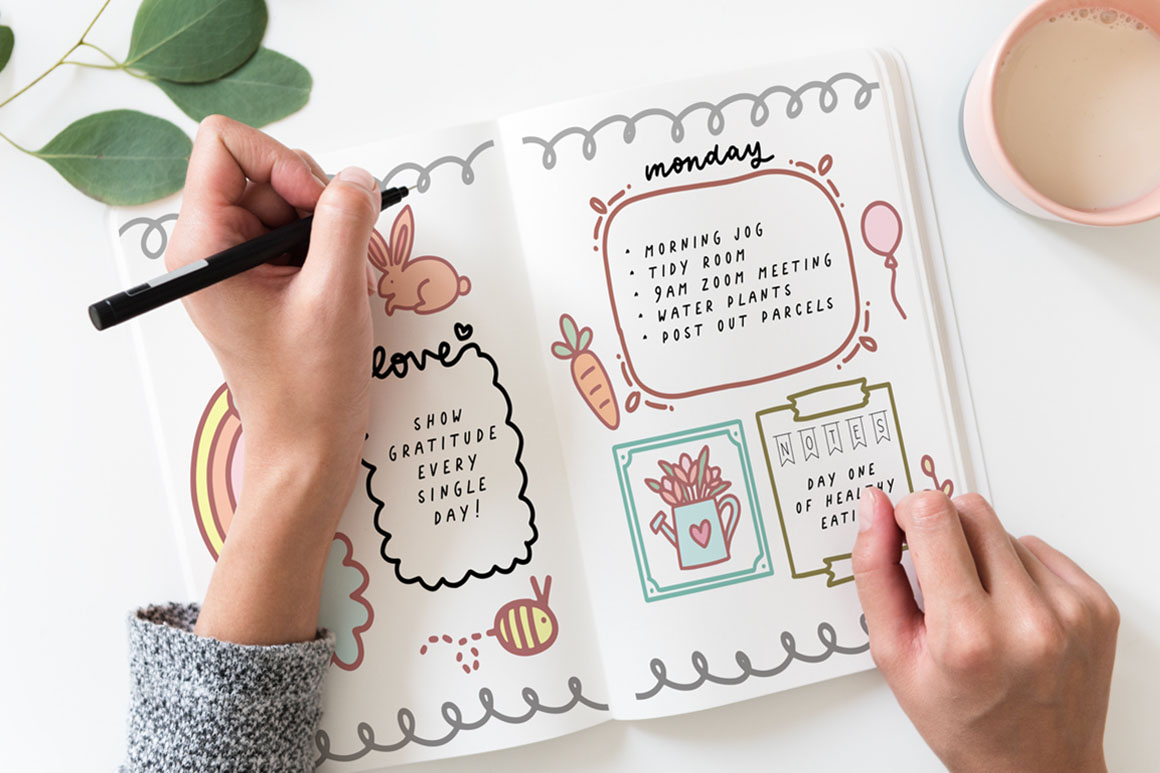 love
SHOW
GRATITUDE
EVERY
SINGLE
DAY!
monday
• MORNING JOG
• TIDY ROOM
• 9AM ZOOM MEETING
• WATER PLANTS
• POST OUT PARCELS
NOTES
DAY ONE
OF HEALTHY